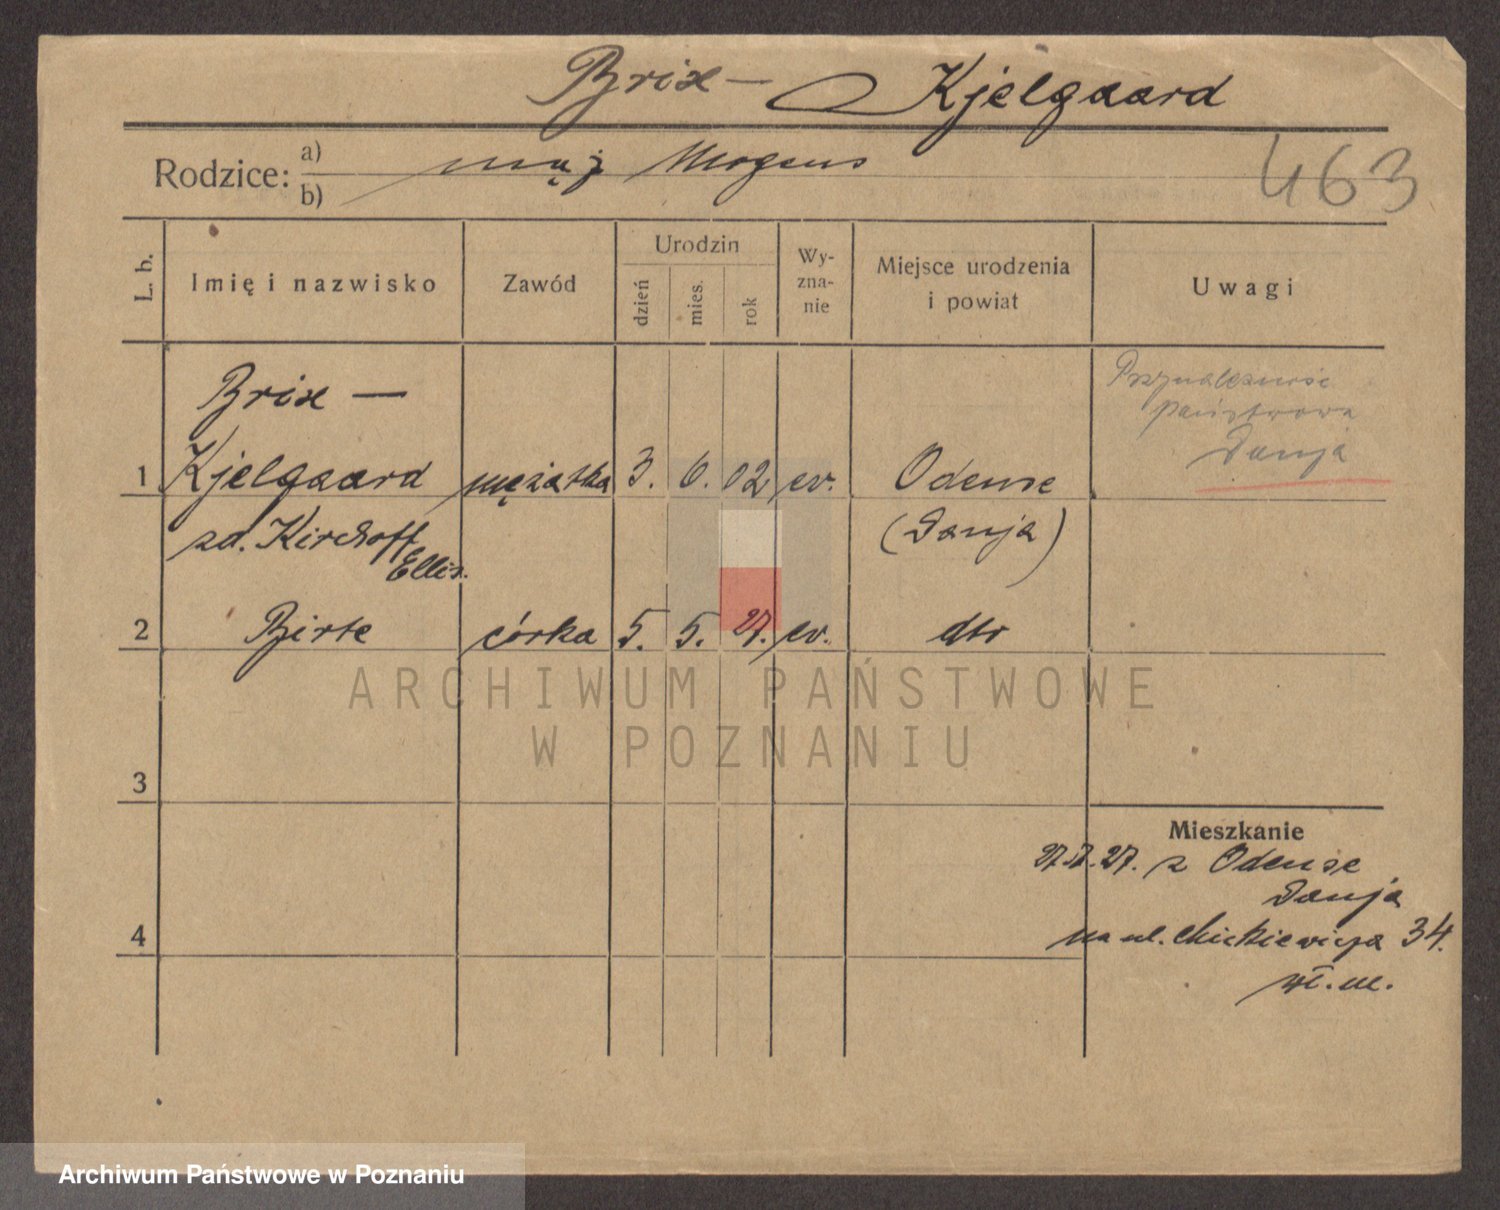 Brix — Kjelgaard
Rodzice: a) mąż Mogens
b)
463
L. b.
Imię i nazwisko
Zawód
Urodzin
dzień
mies.
rok
Wy-
zna-
nie
Miejsce urodzenia
i powiat
Uwagi
Brix —
1 Kjelgaard mężatka 3. 6. 02 ev. Odense
zd. Kirchoff (Danja)
Ellis.
Przynależność
państwowa
Danja
2 Birte córka 5. 5. 27. ev. dto
ARCHIWUM PAŃSTWOWE
W POZNANIU
3
4
Mieszkanie
z Odense
Danja
na ul. Mickiewicza 34.
wł. m.
Archiwum Państwowe w Poznaniu